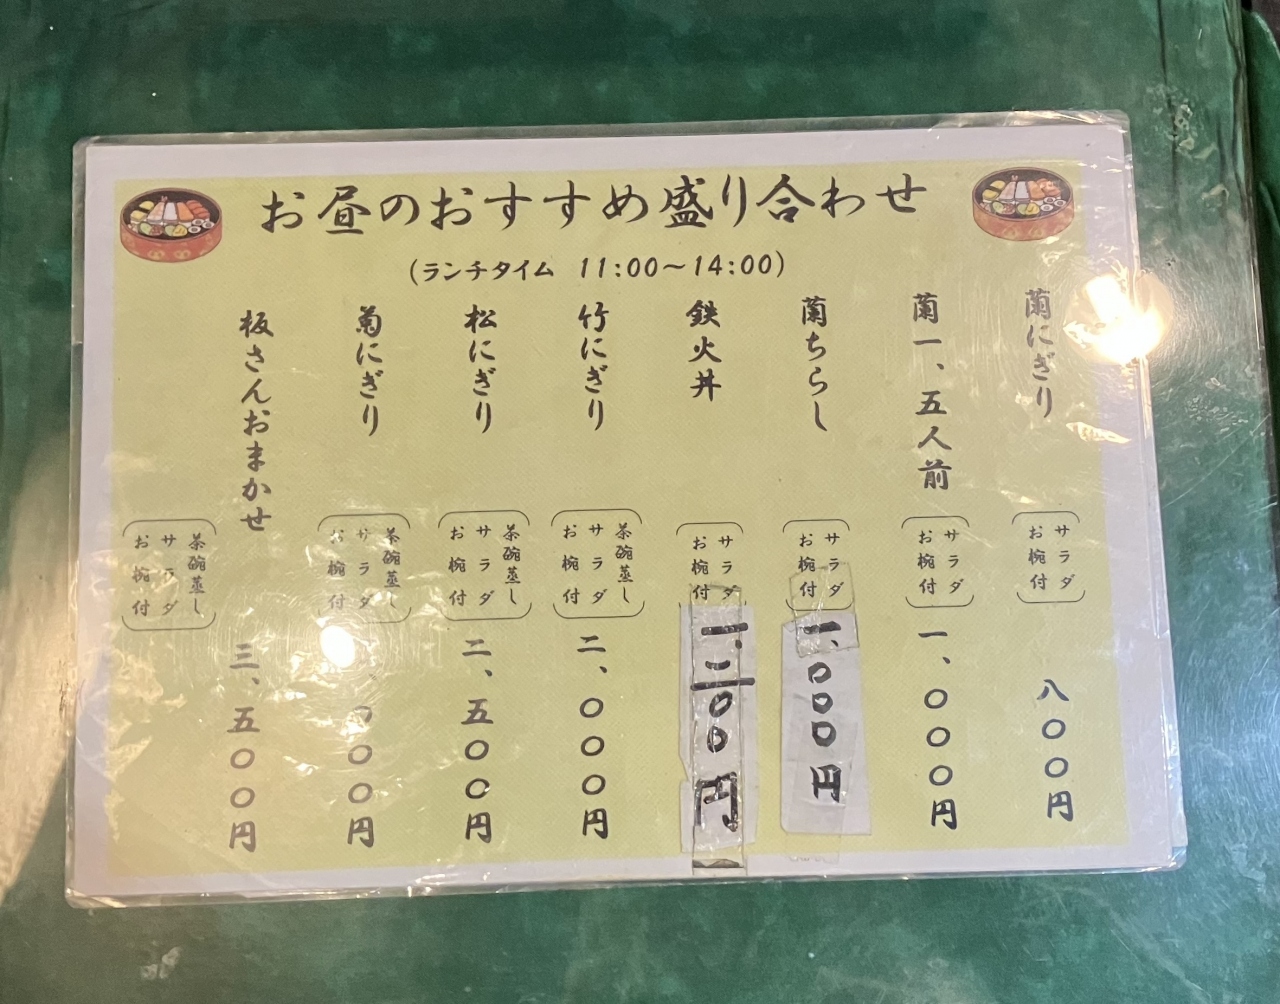 お昼のおすすめ盛り合わせ
(ランチタイム 11:00～14:00)
蘭にぎり
サラダ
お椀付
八〇〇円
蘭一、五人前
サラダ
お椀付
一、〇〇〇円
蘭ちらし
サラダ
お椀付
一、〇〇〇円
鉄火丼
サラダ
お椀付
一、二〇〇円
竹にぎり
茶碗蒸し
サラダ
お椀付
二、〇〇〇円
松にぎり
茶碗蒸し
サラダ
お椀付
二、五〇〇円
菊にぎり
茶碗蒸し
サラダ
お椀付
〇〇〇円
板さんおまかせ
茶碗蒸し
サラダ
お椀付
三、五〇〇円